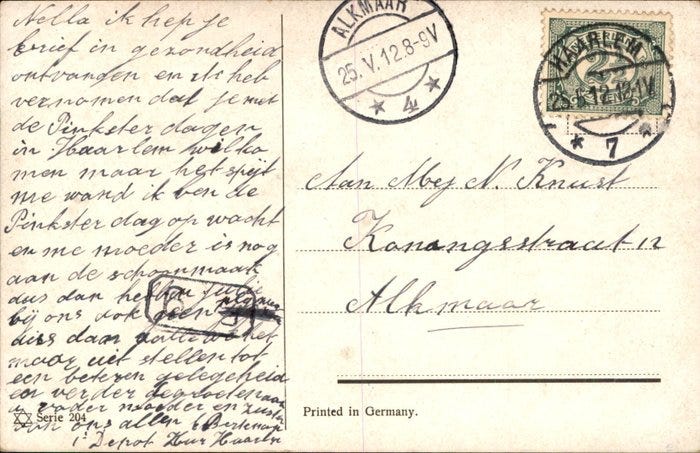 Nella ik heb je
brief in gezondheid
ontvangen en ik heb
vernomen dat je met
de Pinkster dagen
in Haarlem wilko
men maar het spijt
me wand ik ben de
Pinkster dag op wacht
en me moeder is nog
aan de schoonmaak
dus dan hebben jullie
bij ons ook geen
dus dan
maar uit stellen tot
een beteren gelegenheid
en verder de groete
vader moeder en zuster
van ons allen
1e Depot Huz Haarlem
Serie 204
ALKMAAR
25.V.12.8-9V
4
HAARLEM
25.5.12.12-1V
7
Aan Mej N. Knust
Koningsstraat 12
Alkmaar
Printed in Germany.